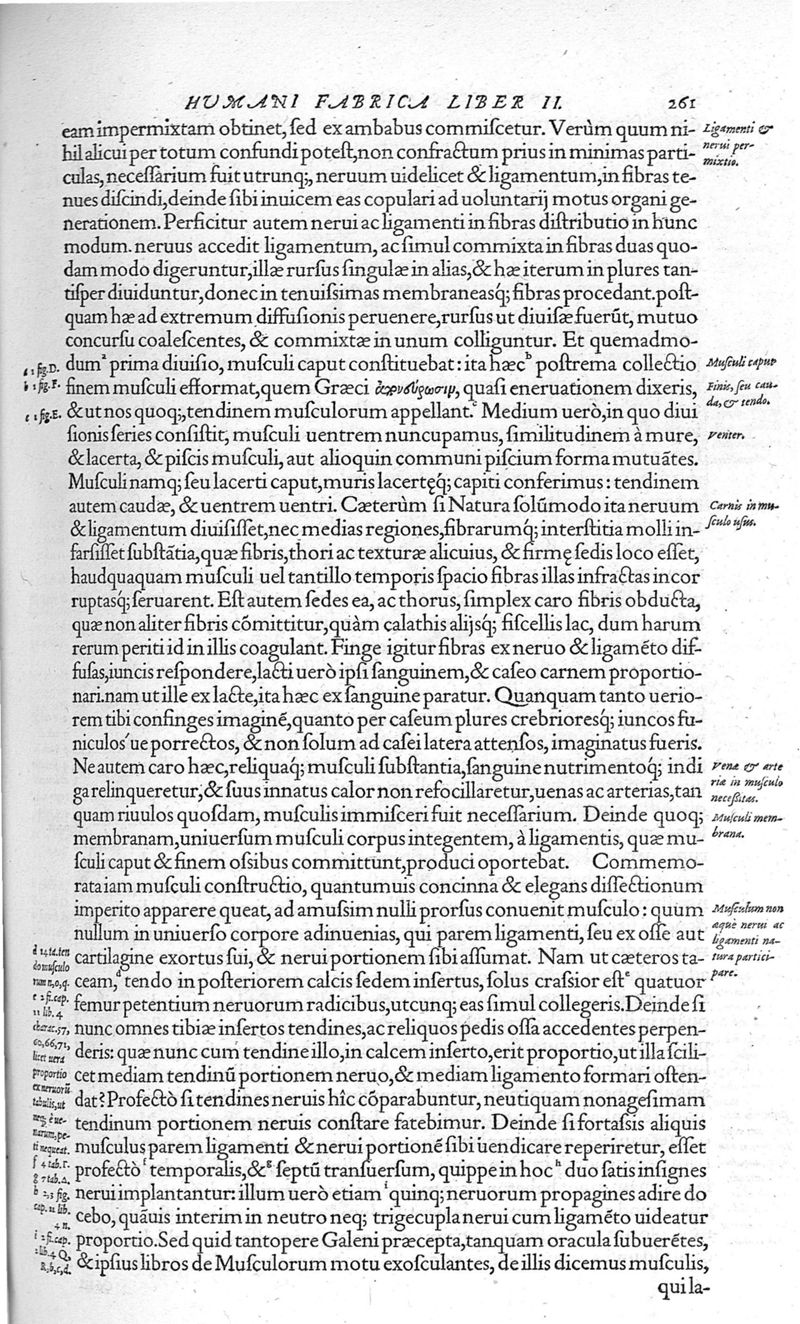 HVMANI FABRICA LIBER II. 261
eam impermixtam obtinet, ſed ex ambabus commiſcetur. Verùm quum ni-
hil alicui per totum confundi poteſt, non confractum prius in minimas parti-
culas, neceſſarium fuit utrunq;, neruum uidelicet & ligamentum, in fibras te-
nues diſcindi, deinde ſibi inuicem eas copulari ad uoluntarij motus organi ge-
nerationem. Perficitur autem nerui ac ligamenti in fibras diſtributio in hunc
modum. neruus accedit ligamentum, ac ſimul commixta in fibras duas quo-
dam modo digeruntur, illæ rurſus ſingulæ in alias, & hæ iterum in plures tan-
tiſper diuiduntur, donec in tenuiſsimas membraneasq́; fibras procedant. poſt-
quam hæ ad extremum diffuſionis peruenere, rurſus ut diuiſæ fuerūt, mutuo
concurſu coaleſcentes, & commixtæ in unum colliguntur. Et quemadmo-
dum ᵃ prima diuiſio, muſculi caput conſtituebat: ita hæc ᵇ poſtrema collectio
finem muſculi efformat, quem Græci quaſi eneruationem dixeris,
& ut nos quoq;, tendinem muſculorum appellant. ᶜ Medium uerò, in quo diui
ſionis ſeries conſiſtit, muſculi uentrem nuncupamus, ſimilitudinem à mure,
& lacerta, & piſcis muſculi, aut alioquin communi piſcium forma mutuātes.
Muſculi namq; ſeu lacerti caput, muris lacertęq́; capiti conferimus: tendinem
autem caudæ, & uentrem uentri. Cæterùm ſi Natura ſolùmodo ita neruum
& ligamentum diuiſiſſet, nec medias regiones, fibrarumq́; interſtitia molli in-
farſiſſet ſubſtātia, quæ fibris, thori ac texturæ alicuius, & firmę ſedis loco eſſet,
haudquaquam muſculi uel tantillo temporis ſpacio fibras illas infractas incor
ruptasq́; ſeruarent. Eſt autem ſedes ea, ac thorus, ſimplex caro fibris obducta,
quæ non aliter fibris cōmittitur, quàm calathis alijsq́; fiſcellis lac, dum harum
rerum periti id in illis coagulant. Finge igitur fibras ex neruo & ligamēto dif-
fuſas, iuncis reſpondere, lacti uerò ipſi ſanguinem, & caſeo carnem proportio-
nari. nam ut ille ex lacte, ita hæc ex ſanguine paratur. Quanquam tanto uerio-
rem tibi confinges imaginē, quanto per caſeum plures crebrioresq́; iuncos fu-
niculos ue porrectos, & non ſolum ad caſei latera attenſos, imaginatus fueris.
Ne autem caro hæc, reliquaq́; muſculi ſubſtantia, ſanguine nutrimentoq́; indi
ga relinqueretur, & ſuus innatus calor non refocillaretur, uenas ac arterias, tan
quam riuulos quoſdam, muſculis immiſceri fuit neceſſarium. Deinde quoq;
membranam, uniuerſum muſculi corpus integentem, à ligamentis, quæ mu-
ſculi caput & finem oſsibus committunt, produci oportebat. Commemo-
rata iam muſculi conſtructio, quantumuis concinna & elegans diſſectionum
imperito apparere queat, ad amuſsim nulli prorſus conuenit muſculo: quum
nullum in uniuerſo corpore adinuenias, qui parem ligamenti, ſeu ex oſſe aut
cartilagine exortus ſui, & nerui portionem ſibi aſſumat. Nam ut cæteros ta-
ceam, ᵈ tendo in poſteriorem calcis ſedem inſertus, ſolus craſsior eſt ᵉ quatuor
femur petentium neruorum radicibus, utcunq; eas ſimul collegeris. Deinde ſi
nunc omnes tibiæ inſertos tendines, ac reliquos pedis oſſa accedentes perpen-
deris: quæ nunc cum tendine illo, in calcem inſerto, erit proportio, ut illa ſcili-
cet mediam tendinū portionem neruo, & mediam ligamento formari oſten-
dat? Profectò ſi tendines neruis hîc cōparabuntur, neutiquam nonageſimam
tendinum portionem neruis conſtare fatebimur. Deinde ſi fortaſsis aliquis
muſculus parem ligamenti & nerui portionē ſibi uendicare reperiretur, eſſet
profectò ᶠ temporalis, & ᵍ ſeptū tranſuerſum, quippe in hoc ʰ duo ſatis inſignes
nerui implantantur: illum uerò etiam ⁱ quinq; neruorum propagines adire do
cebo, quāuis interim in neutro neq; trigecupla nerui cum ligamēto uideatur
proportio. Sed quid tantopere Galeni præcepta, tanquam oracula ſubuerētes,
& ipſius libros de Muſculorum motu exoſculantes, de illis dicemus muſculis,
qui la-
Ligamenti &
nerui per-
mixtio.
Muſculi caput
Finis, ſeu cau-
da, & tendo.
Venter.
Carnis in mu-
ſculo uſus.
Venæ & arte
riæ in muſculo
neceſsitas.
Muſculi mem-
brana.
Muſculum non
æquè nerui ac
ligamenti na-
tura partici-
pare.
a 1 fig. D.
b 1 fig. F.
c 1 fig. E.
d 14 ta. ten
do muſculo
rum n, o, q.
e 2 fi. cap.
11 lib. 4
charac. 57,
60, 66, 71,
licet uera
proportio
ex neruorū
tabulis, ut
neq; è ue-
narum, pe-
ti nequeat.
f 4 tab. Γ.
g 7 tab. Δ.
h 2, 3 fig.
cap. 11 lib.
4 n.
i 2 fi. cap.
2 lib. 4 Q,
R, b, c, d.